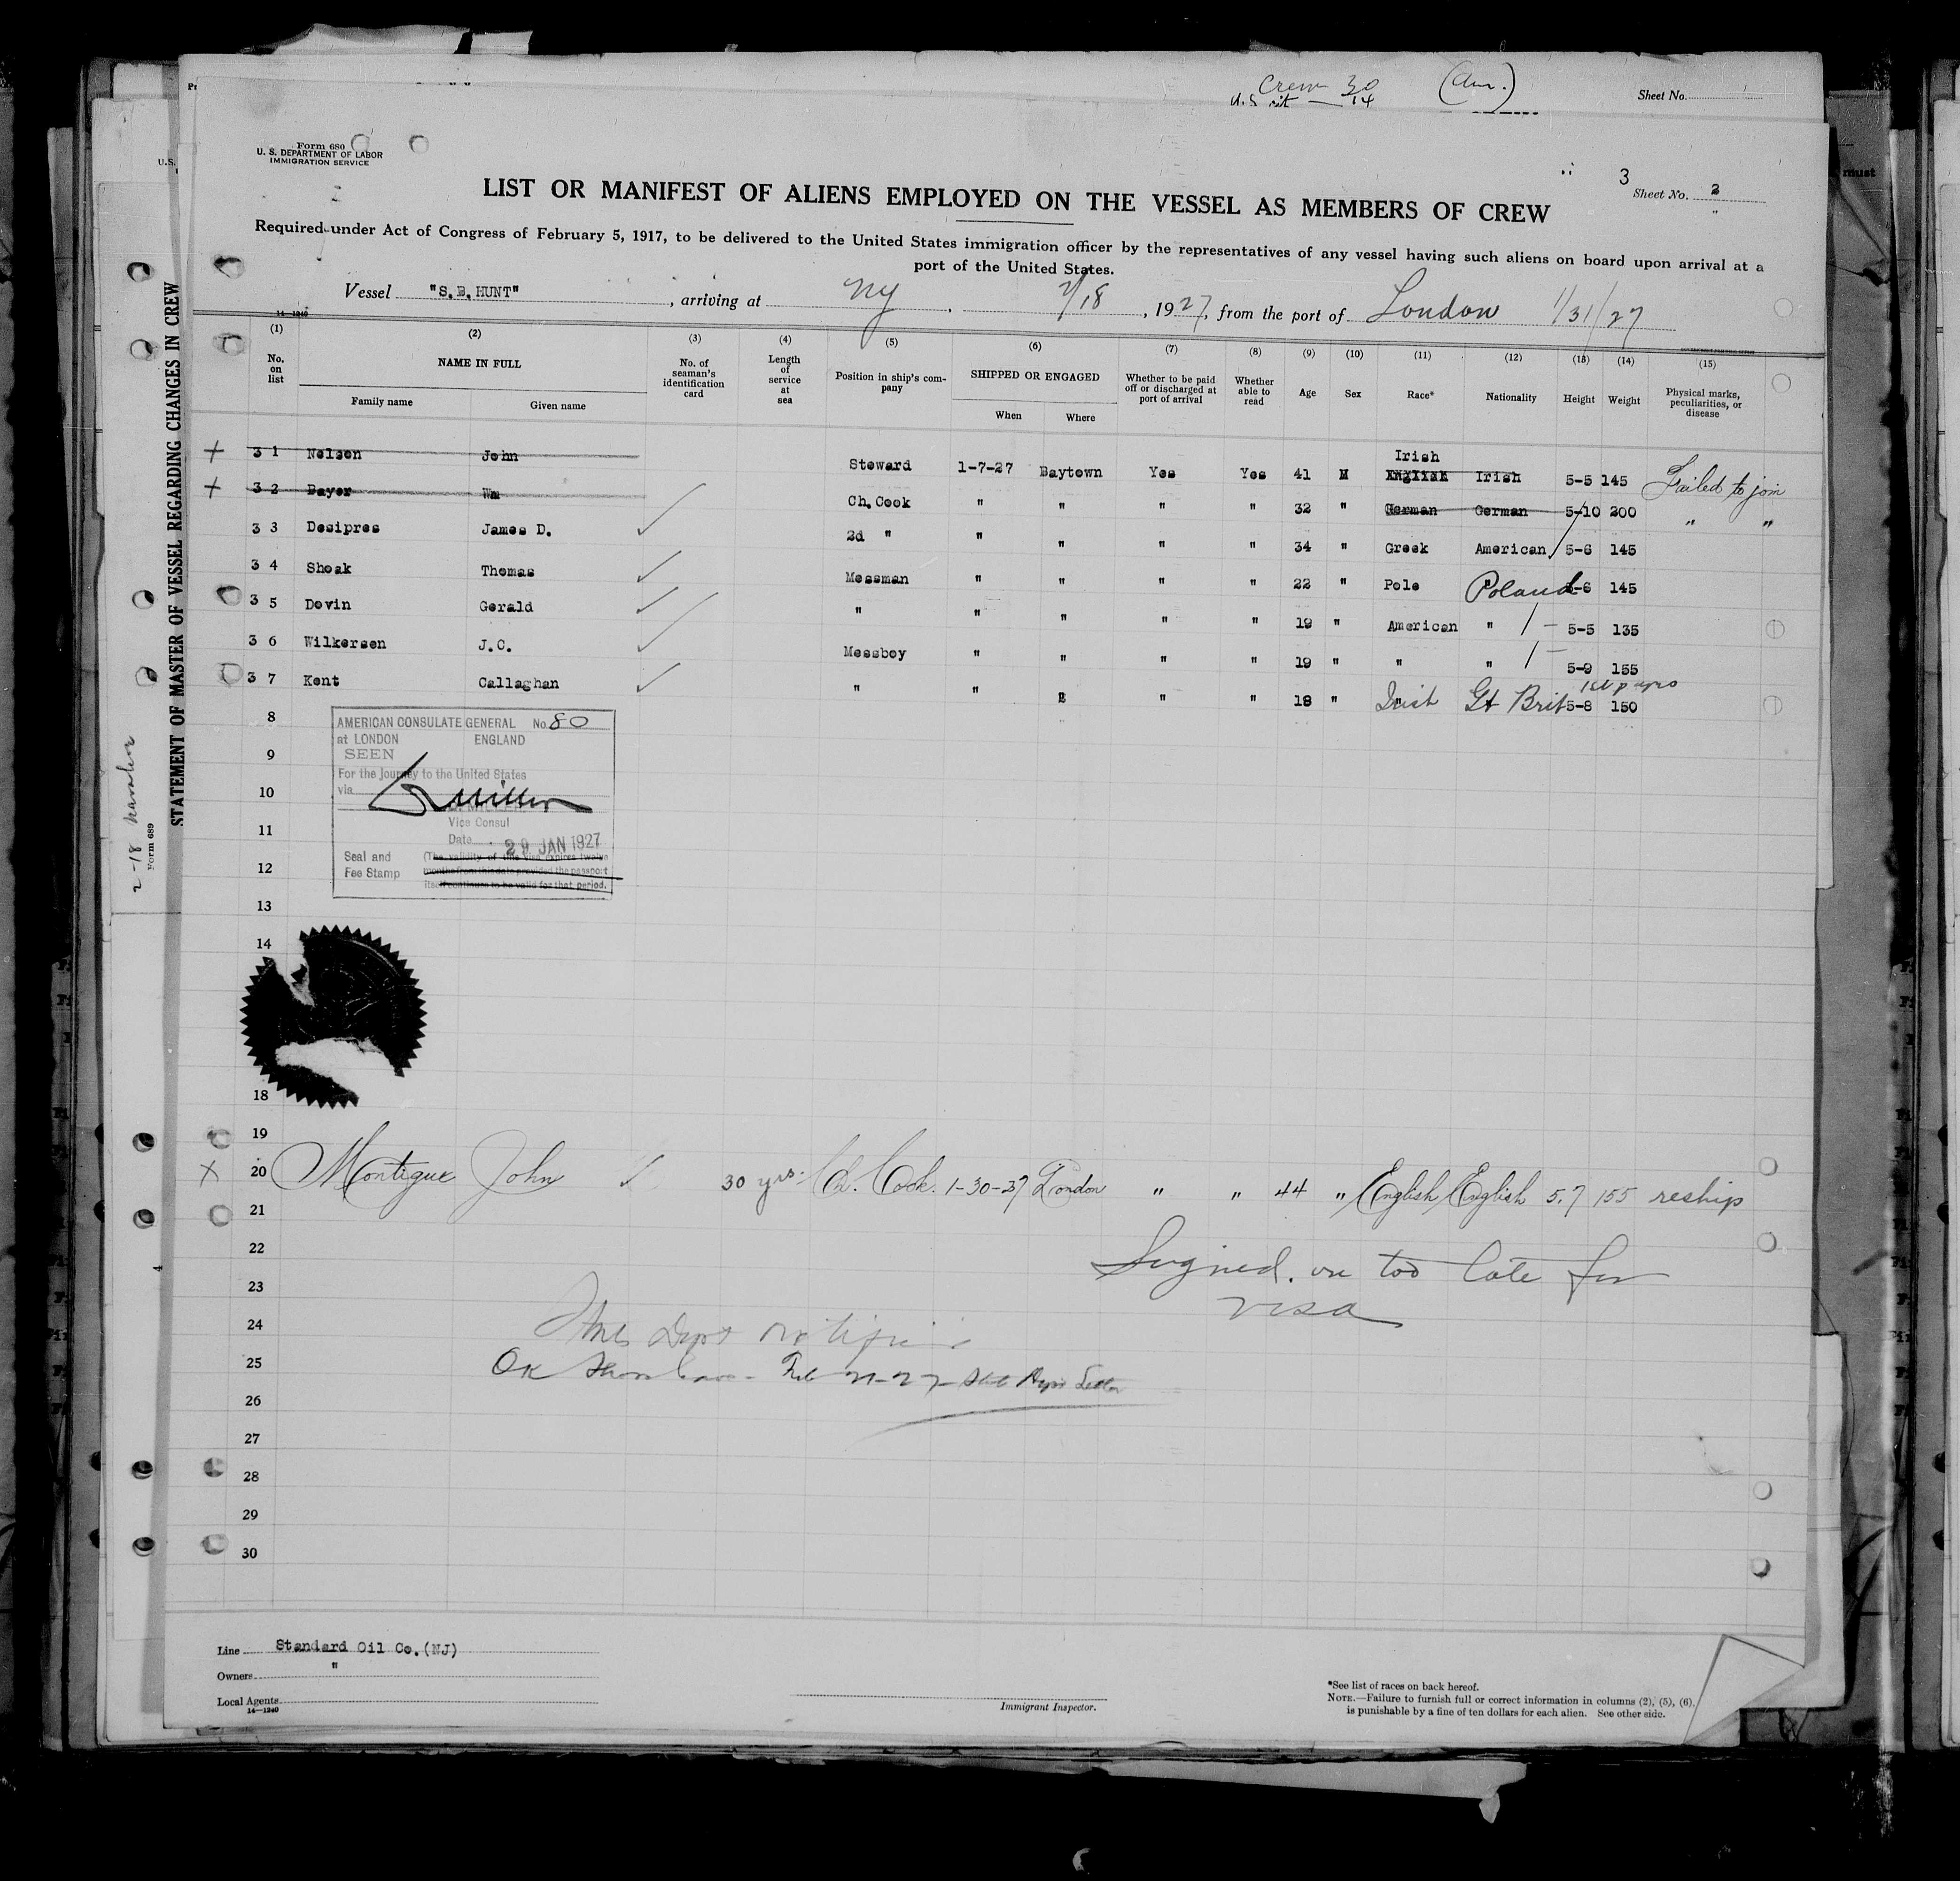 Crew 30 (Am.)
U.S. cit — 14
Sheet No.
Form 680
U. S. DEPARTMENT OF LABOR
IMMIGRATION SERVICE
U.S.
must
3
Sheet No. 2
LIST OR MANIFEST OF ALIENS EMPLOYED ON THE VESSEL AS MEMBERS OF CREW
Required under Act of Congress of February 5, 1917, to be delivered to the United States immigration officer by the representatives of any vessel having such aliens on board upon arrival at a
port of the United States.
Vessel "S.B.HUNT", arriving at NY, 2/18, 1927, from the port of London 1/31/27
14—1240
(1) (2) (3) (4) (5) (6) (7) (8) (9) (10) (11) (12) (13) (14) (15)
No. on list NAME IN FULL No. of seaman's identification card Length of service at sea Position in ship's company SHIPPED OR ENGAGED Whether to be paid off or discharged at port of arrival Whether able to read Age Sex Race* Nationality Height Weight Physical marks, peculiarities, or disease
Family name Given name When Where
+ 3 1 Nelson John Steward 1-7-27 Baytown Yes Yes 41 M Irish English Irish 5-5 145 Failed to join
+ 3 2 Bayer Wm Ch.Cook " " " " 32 " German German 5-10 200 " "
3 3 Desipres James D. 2d " " " " " 34 " Greek American 5-6 145
3 4 Shoak Thomas Messman " " " " 22 " Pole Poland 5-6 145
3 5 Devin Gerald " " " " " 19 " American " 5-5 135
3 6 Wilkersen J.C. Messboy " " " " 19 " " " 5-9 155
3 7 Kent Callaghan " " " " " 18 " Irish Gt Brit 5-8 150
8
AMERICAN CONSULATE GENERAL No. 80
at LONDON ENGLAND
SEEN
For the Journey to the United States
via
Vice Consul
Date 29 JAN 1927
Seal and
Fee Stamp
(The validity of this visa expires twelve
months from this date provided the passport
itself continues to be valid for that period.
9
10
11
12
13
14
18
19
X 20 Montigue John 30 yrs. Ch. Cook. 1-30-27 London " " 44 " English English 5.7 155 reship
21
22
Signed on too late for
visa
23
24
25
26
27
28
29
30
Line Standard Oil Co.(NJ)
Owners "
Local Agents
14—1240
Immigrant Inspector.
*See list of races on back hereof.
NOTE.—Failure to furnish full or correct information in columns (2), (5), (6),
is punishable by a fine of ten dollars for each alien. See other side.
STATEMENT OF MASTER OF VESSEL REGARDING CHANGES IN CREW
Form 689
2-18